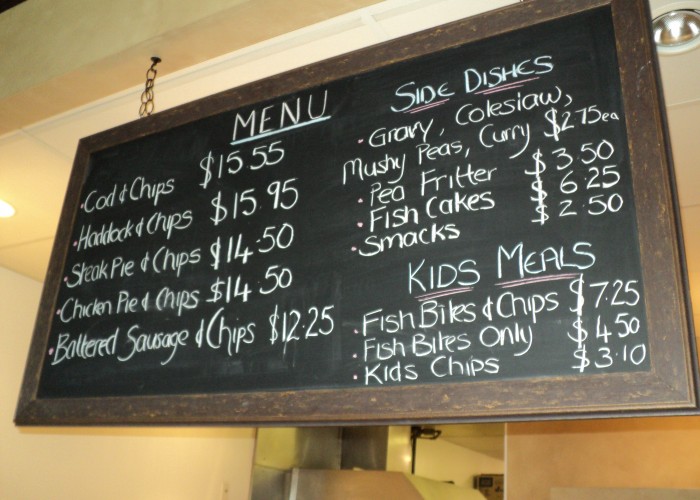 MENU
Cod & Chips $15.55
Haddock & Chips $15.95
Steak Pie & Chips $14.50
Chicken Pie & Chips $14.50
Battered Sausage & Chips $12.25
SIDE DISHES
Gravy, Coleslaw,
Mushy Peas, Curry $2.75ea
Pea Fritter $3.50
Fish Cakes $6.25
Smacks $2.50
KIDS MEALS
Fish Bites & Chips $7.25
Fish Bites Only $4.50
Kids Chips $3.10